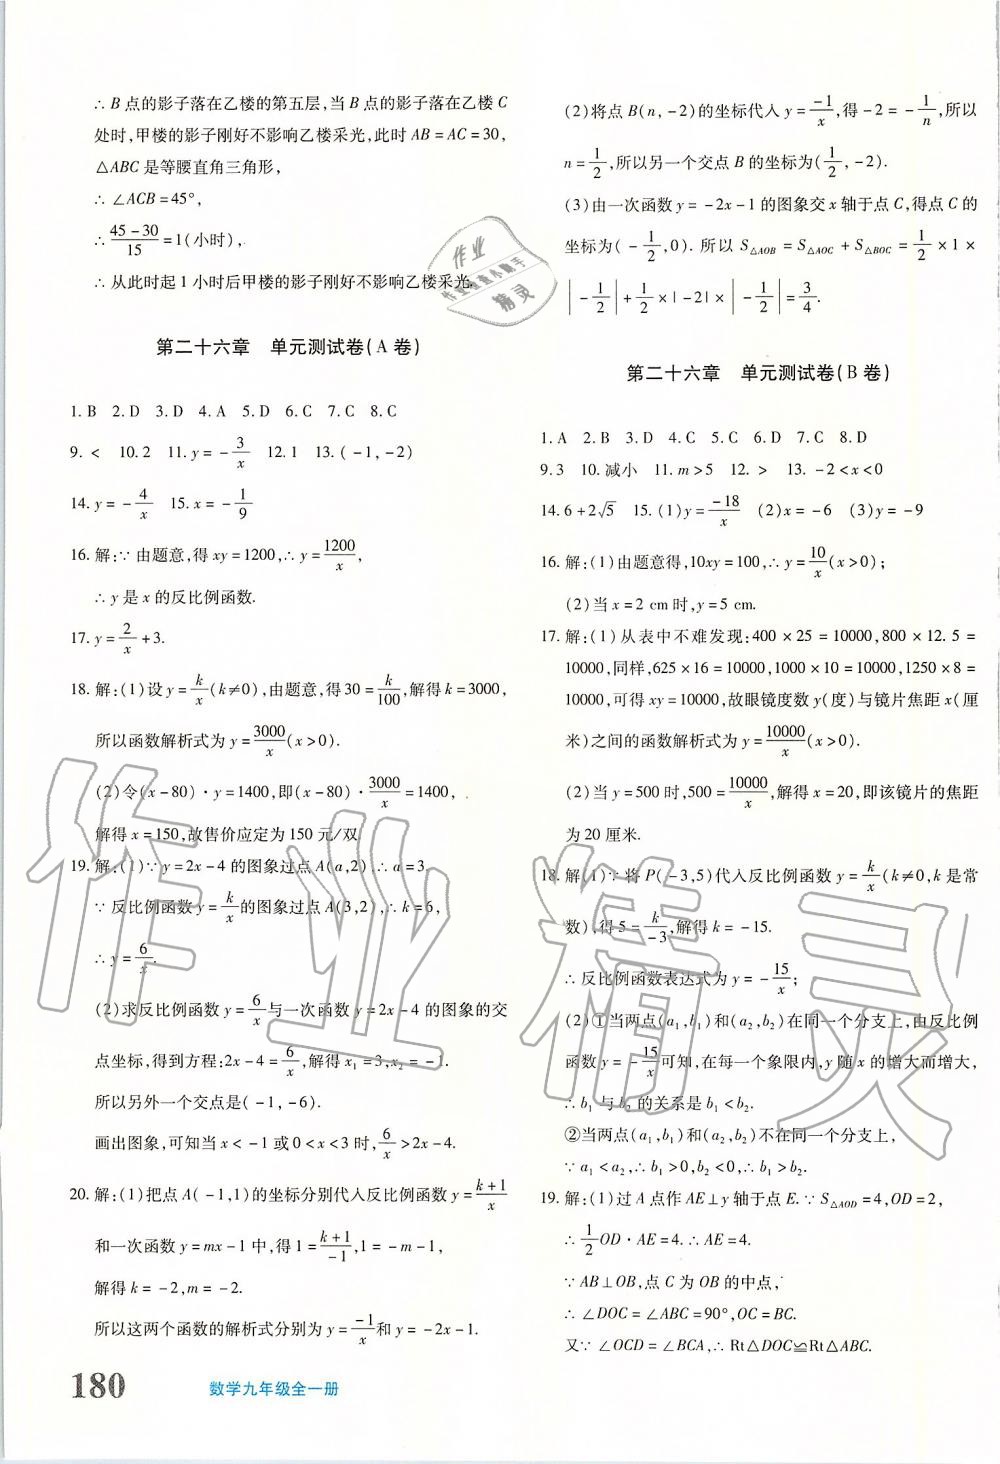 ∴ B点的影子落在乙楼的第五层,当B点的影子落在乙楼C
处时,甲楼的影子刚好不影响乙楼采光,此时 AB = AC = 30,
△ABC 是等腰直角三角形,
∴ ∠ACB = 45°,
∴ (45 - 30)/15 = 1(小时),
∴ 从此时起 1 小时后甲楼的影子刚好不影响乙楼采光.
第二十六章 单元测试卷(A 卷)
1. B 2. D 3. D 4. A 5. D 6. C 7. C 8. C
9. < 10. 2 11. y = - 3/x 12. 1 13. ( - 1, - 2)
14. y = - 4/x 15. x = - 1/9
16. 解:∵ 由题意,得 xy = 1200,∴ y = 1200/x,
∴ y 是 x 的反比例函数.
17. y = 2/x + 3.
18. 解:(1)设 y = k/x (k≠0),由题意,得 30 = k/100,解得 k = 3000,
所以函数解析式为 y = 3000/x (x > 0).
(2)令(x - 80)·y = 1400,即(x - 80)·3000/x = 1400,
解得 x = 150,故售价应定为 150 元/双.
19. 解:(1)∵ y = 2x - 4 的图象过点 A(a,2),∴ a = 3.
∵ 反比例函数 y = k/x 的图象过点 A(3,2),∴ k = 6,
∴ y = 6/x.
(2)求反比例函数 y = 6/x 与一次函数 y = 2x - 4 的图象的交
点坐标,得到方程:2x - 4 = 6/x,解得 x₁ = 3,x₂ = - 1.
所以另外一个交点是( - 1, - 6).
画出图象,可知当 x < - 1 或 0 < x < 3 时,6/x > 2x - 4.
20. 解:(1)把点 A( - 1,1)的坐标分别代入反比例函数 y = (k + 1)/x
和一次函数 y = mx - 1 中,得 1 = (k + 1)/(-1),1 = - m - 1,
解得 k = - 2,m = - 2.
所以这两个函数的解析式分别为 y = -1/x 和 y = - 2x - 1.
180 数学九年级全一册
(2)将点 B(n, - 2)的坐标代入 y = -1/x,得 - 2 = - 1/n,所以
n = 1/2,所以另一个交点 B 的坐标为(1/2, - 2).
(3)由一次函数 y = - 2x - 1 的图象交 x 轴于点 C,得点 C 的
坐标为( - 1/2,0). 所以 S△AOB = S△AOC + S△BOC = 1/2 × 1 ×
| - 1/2 | + 1/2 × | - 2 | × | - 1/2 | = 3/4.
第二十六章 单元测试卷(B 卷)
1. A 2. B 3. D 4. C 5. C 6. D 7. C 8. D
9. 3 10. 减小 11. m > 5 12. > 13. - 2 < x < 0
14. 6 + 2√5 15. (1)y = -18/x (2)x = - 6 (3)y = - 9
16. 解:(1)由题意得,10xy = 100,∴ y = 10/x (x > 0);
(2)当 x = 2 cm 时,y = 5 cm.
17. 解:(1)从表中不难发现:400 × 25 = 10000,800 × 12. 5 =
10000,同样,625 × 16 = 10000,1000 × 10 = 10000,1250 × 8 =
10000,可得 xy = 10000,故眼镜度数 y(度)与镜片焦距 x(厘
米)之间的函数解析式为 y = 10000/x (x > 0).
(2)当 y = 500 时,500 = 10000/x,解得 x = 20,即该镜片的焦距
为 20 厘米.
18. 解(1)∵ 将 P( - 3,5)代入反比例函数 y = k/x (k≠0,k 是常
数),得 5 = k/(-3),解得 k = - 15.
∴ 反比例函数表达式为 y = - 15/x;
(2)①当两点(a₁,b₁)和(a₂,b₂)在同一个分支上,由反比例
函数 y = - 15/x 可知,在每一个象限内,y 随 x 的增大而增大,
∴ b₁ 与 b₂ 的关系是 b₁ < b₂.
②当两点(a₁,b₁)和(a₂,b₂)不在同一个分支上,
∵ a₁ < a₂,∴ b₁ > 0,b₂ < 0,∴ b₁ > b₂.
19. 解:(1)过 A 点作 AE⊥y 轴于点 E. ∵ S△AOD = 4,OD = 2,
∴ 1/2 OD·AE = 4. ∴ AE = 4.
∵ AB⊥OB,点 C 为 OB 的中点,
∴ ∠DOC = ∠ABC = 90°,OC = BC.
又∵ ∠OCD = ∠BCA,∴ Rt△DOC≌Rt△ABC.
作业
精灵
作业精灵